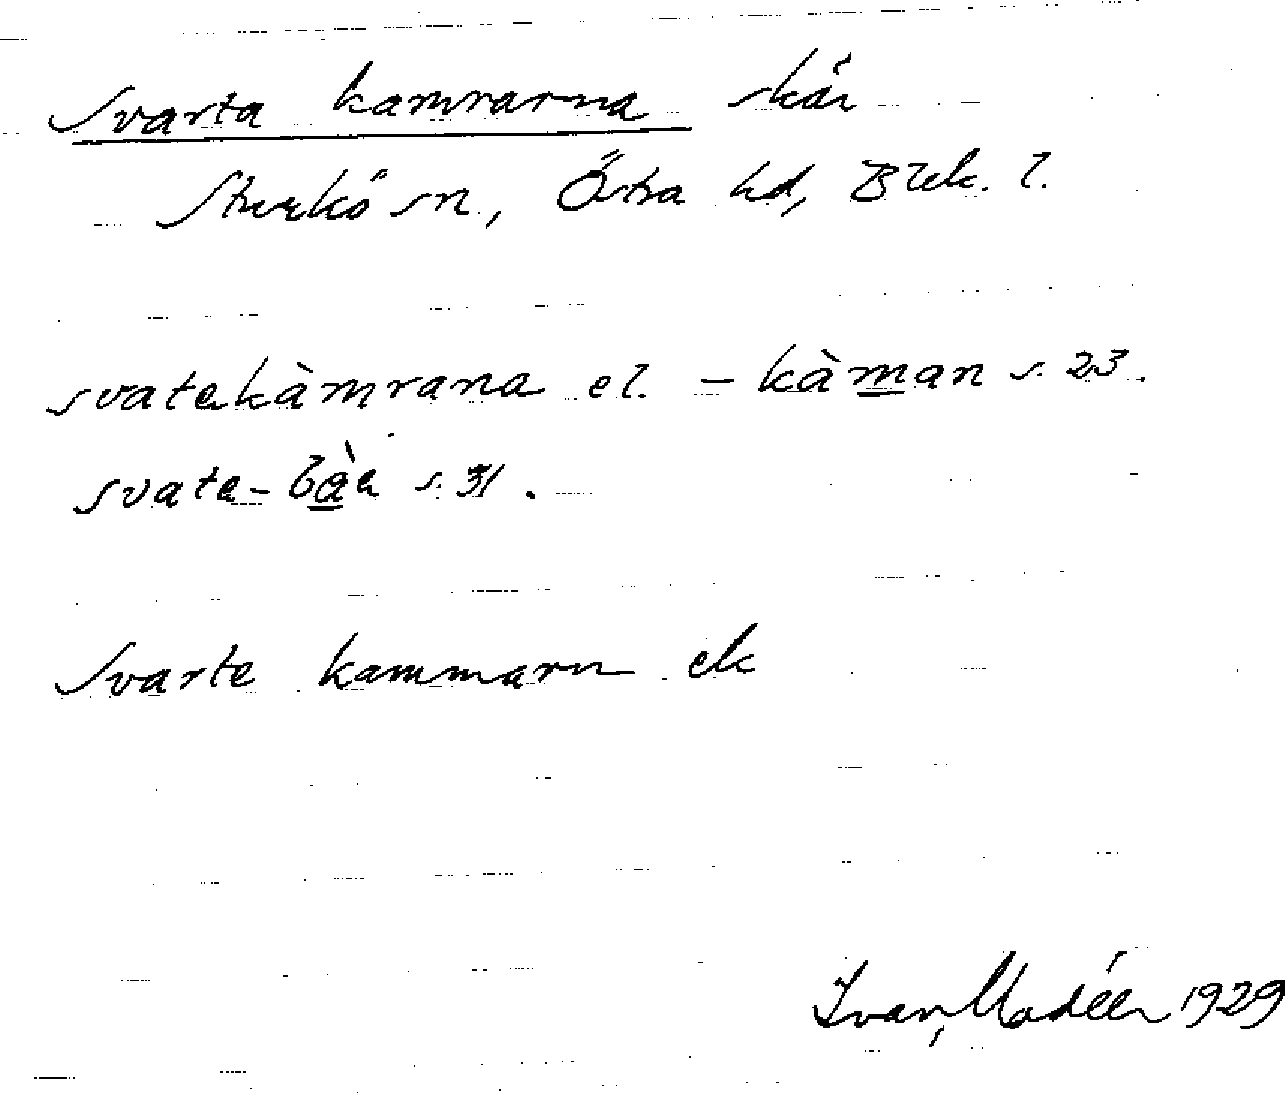 Svarta kamrarna skär
Sturkö sn, Östra hd, Blek. l.
svatekàmrana el. - kàman s. 23.
svate- s. 31.
Svarte kammarn ek
Ivar Modéer 1929